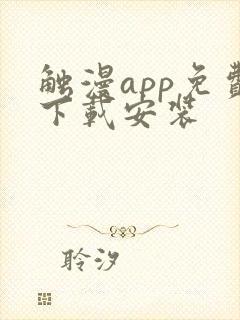 触漫app免费
下载安装
聆汐